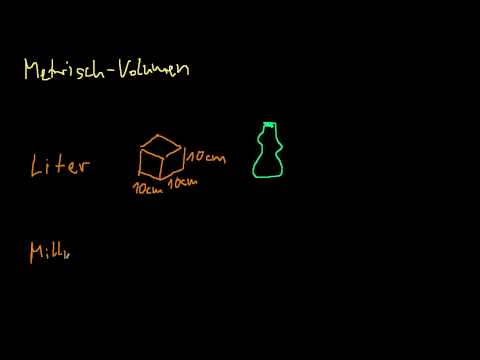 Metrisch-Volumen
Liter
10cm
10cm 10cm
Milli